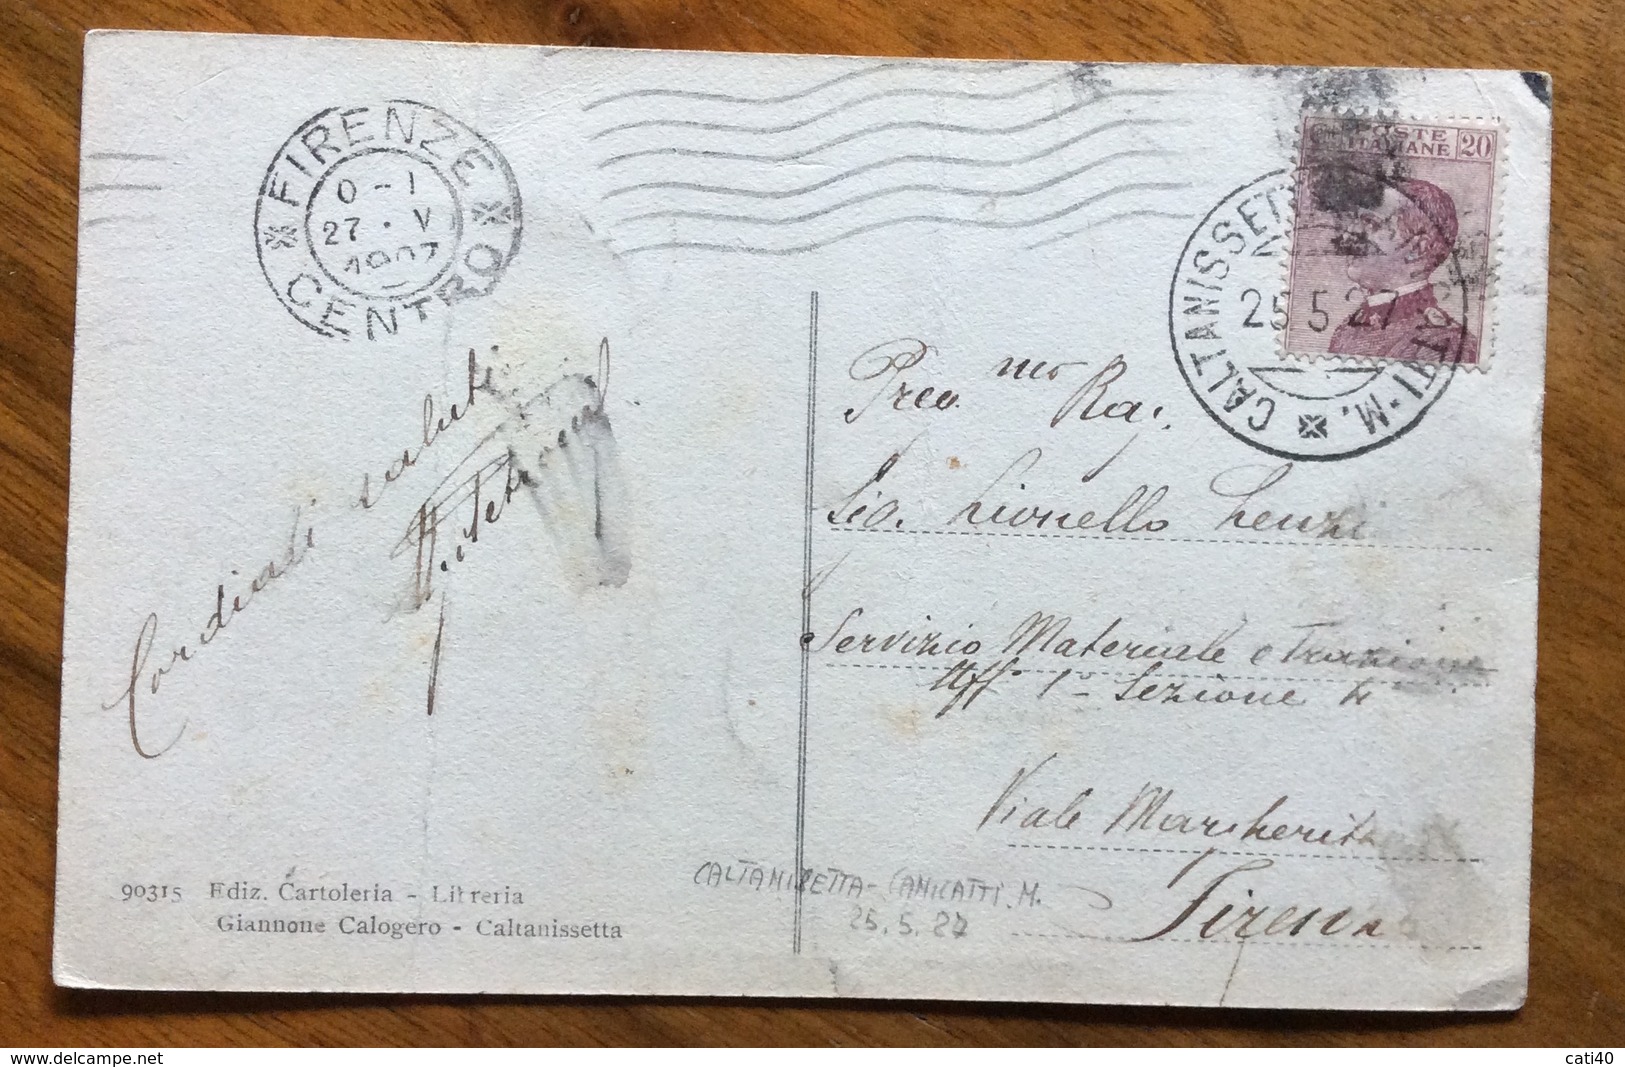 FIRENZE
0-1
27 · V
CENTRO
POSTE
ITALIANE
20
CALTANISSETTA
25.5.27
CANICATTI·M.
Preg.mo Rag.
Sig. Lionello Lenzi
Servizio Materiale e Trazione
Uff° 1° Sezione 4
Viale Margherita
Firenze
Cordiali saluti
CALTANISSETTA-CANICATTI.M.
25.5.27
90315 Ediz. Cartoleria - Libreria
Giannone Calogero - Caltanissetta
cati40